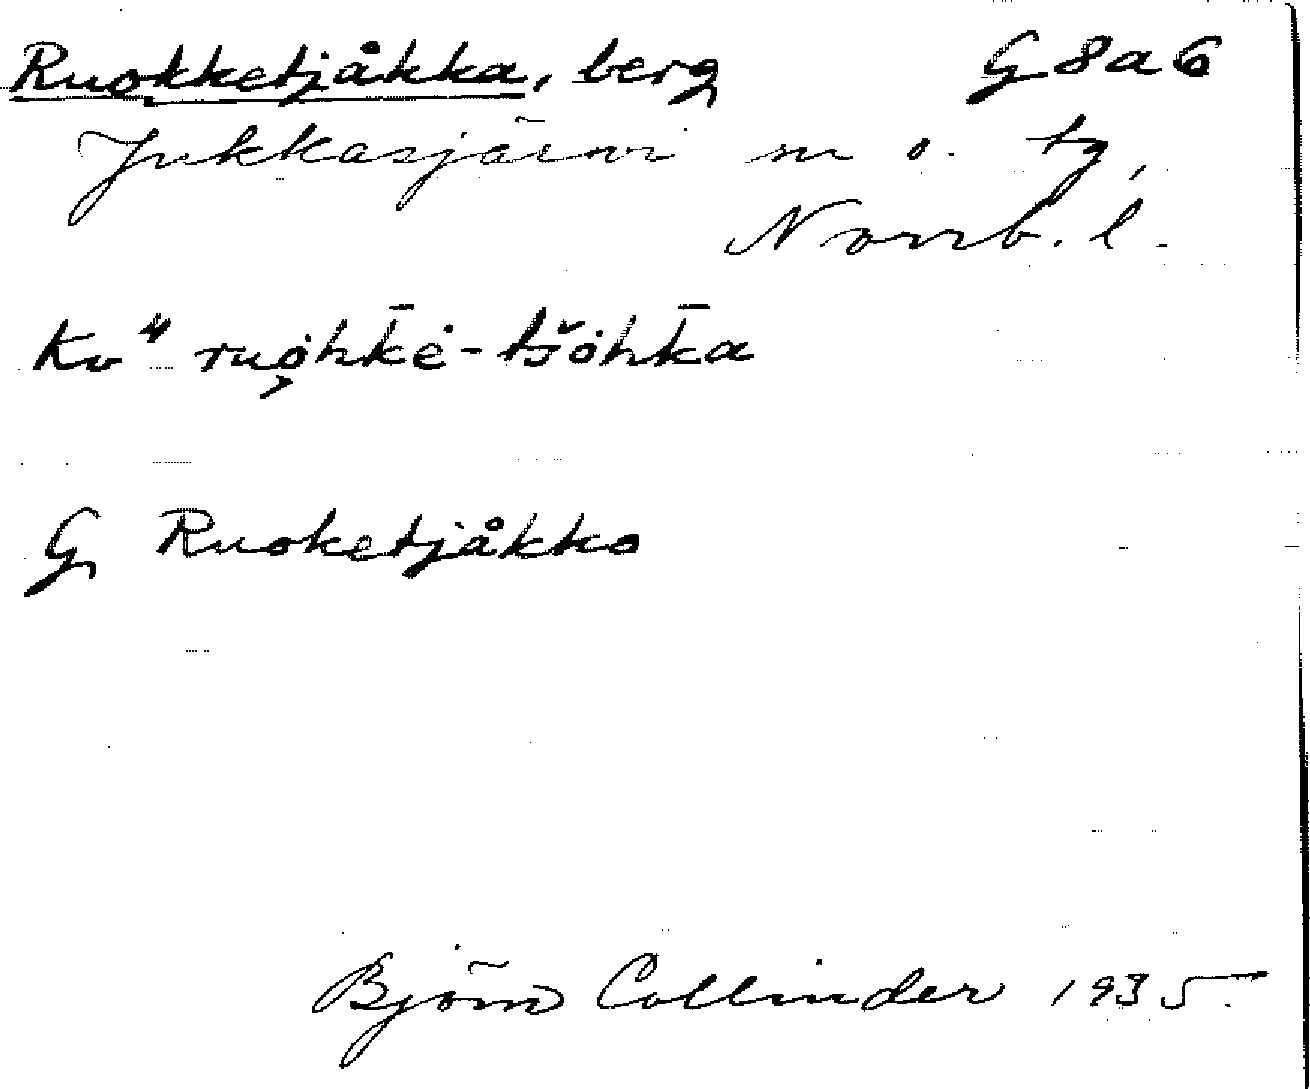 Ruokketjåkka, berg G 8 a 6
Jukkasjärvi sn o. tg,
Norrb. l.
Kv" ruo̭hk̄ė-tšŏ̇hk̄a
G Ruoketjåkko
Björn Collinder 1935.